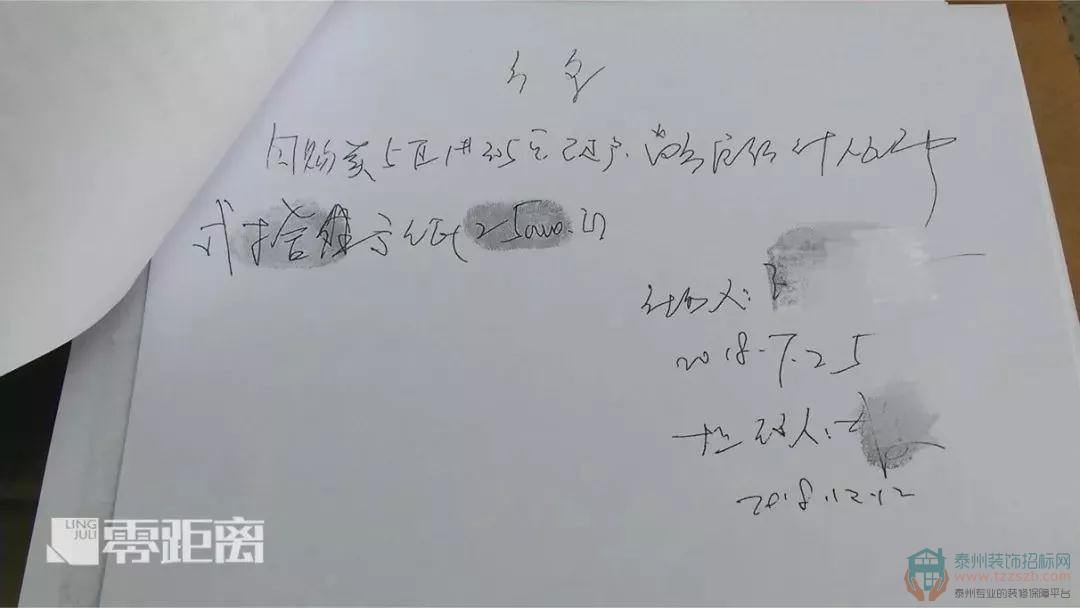 欠条
因购买5区1#305室已过户，尚欠房款计人民币
贰拾伍万元（25000.00
欠款人：
2018.7.25
担保人：
2018.12.12
LING JULI 零距离
泰州装饰招标网
www.tzzszb.com
泰州专业的装修保障平台